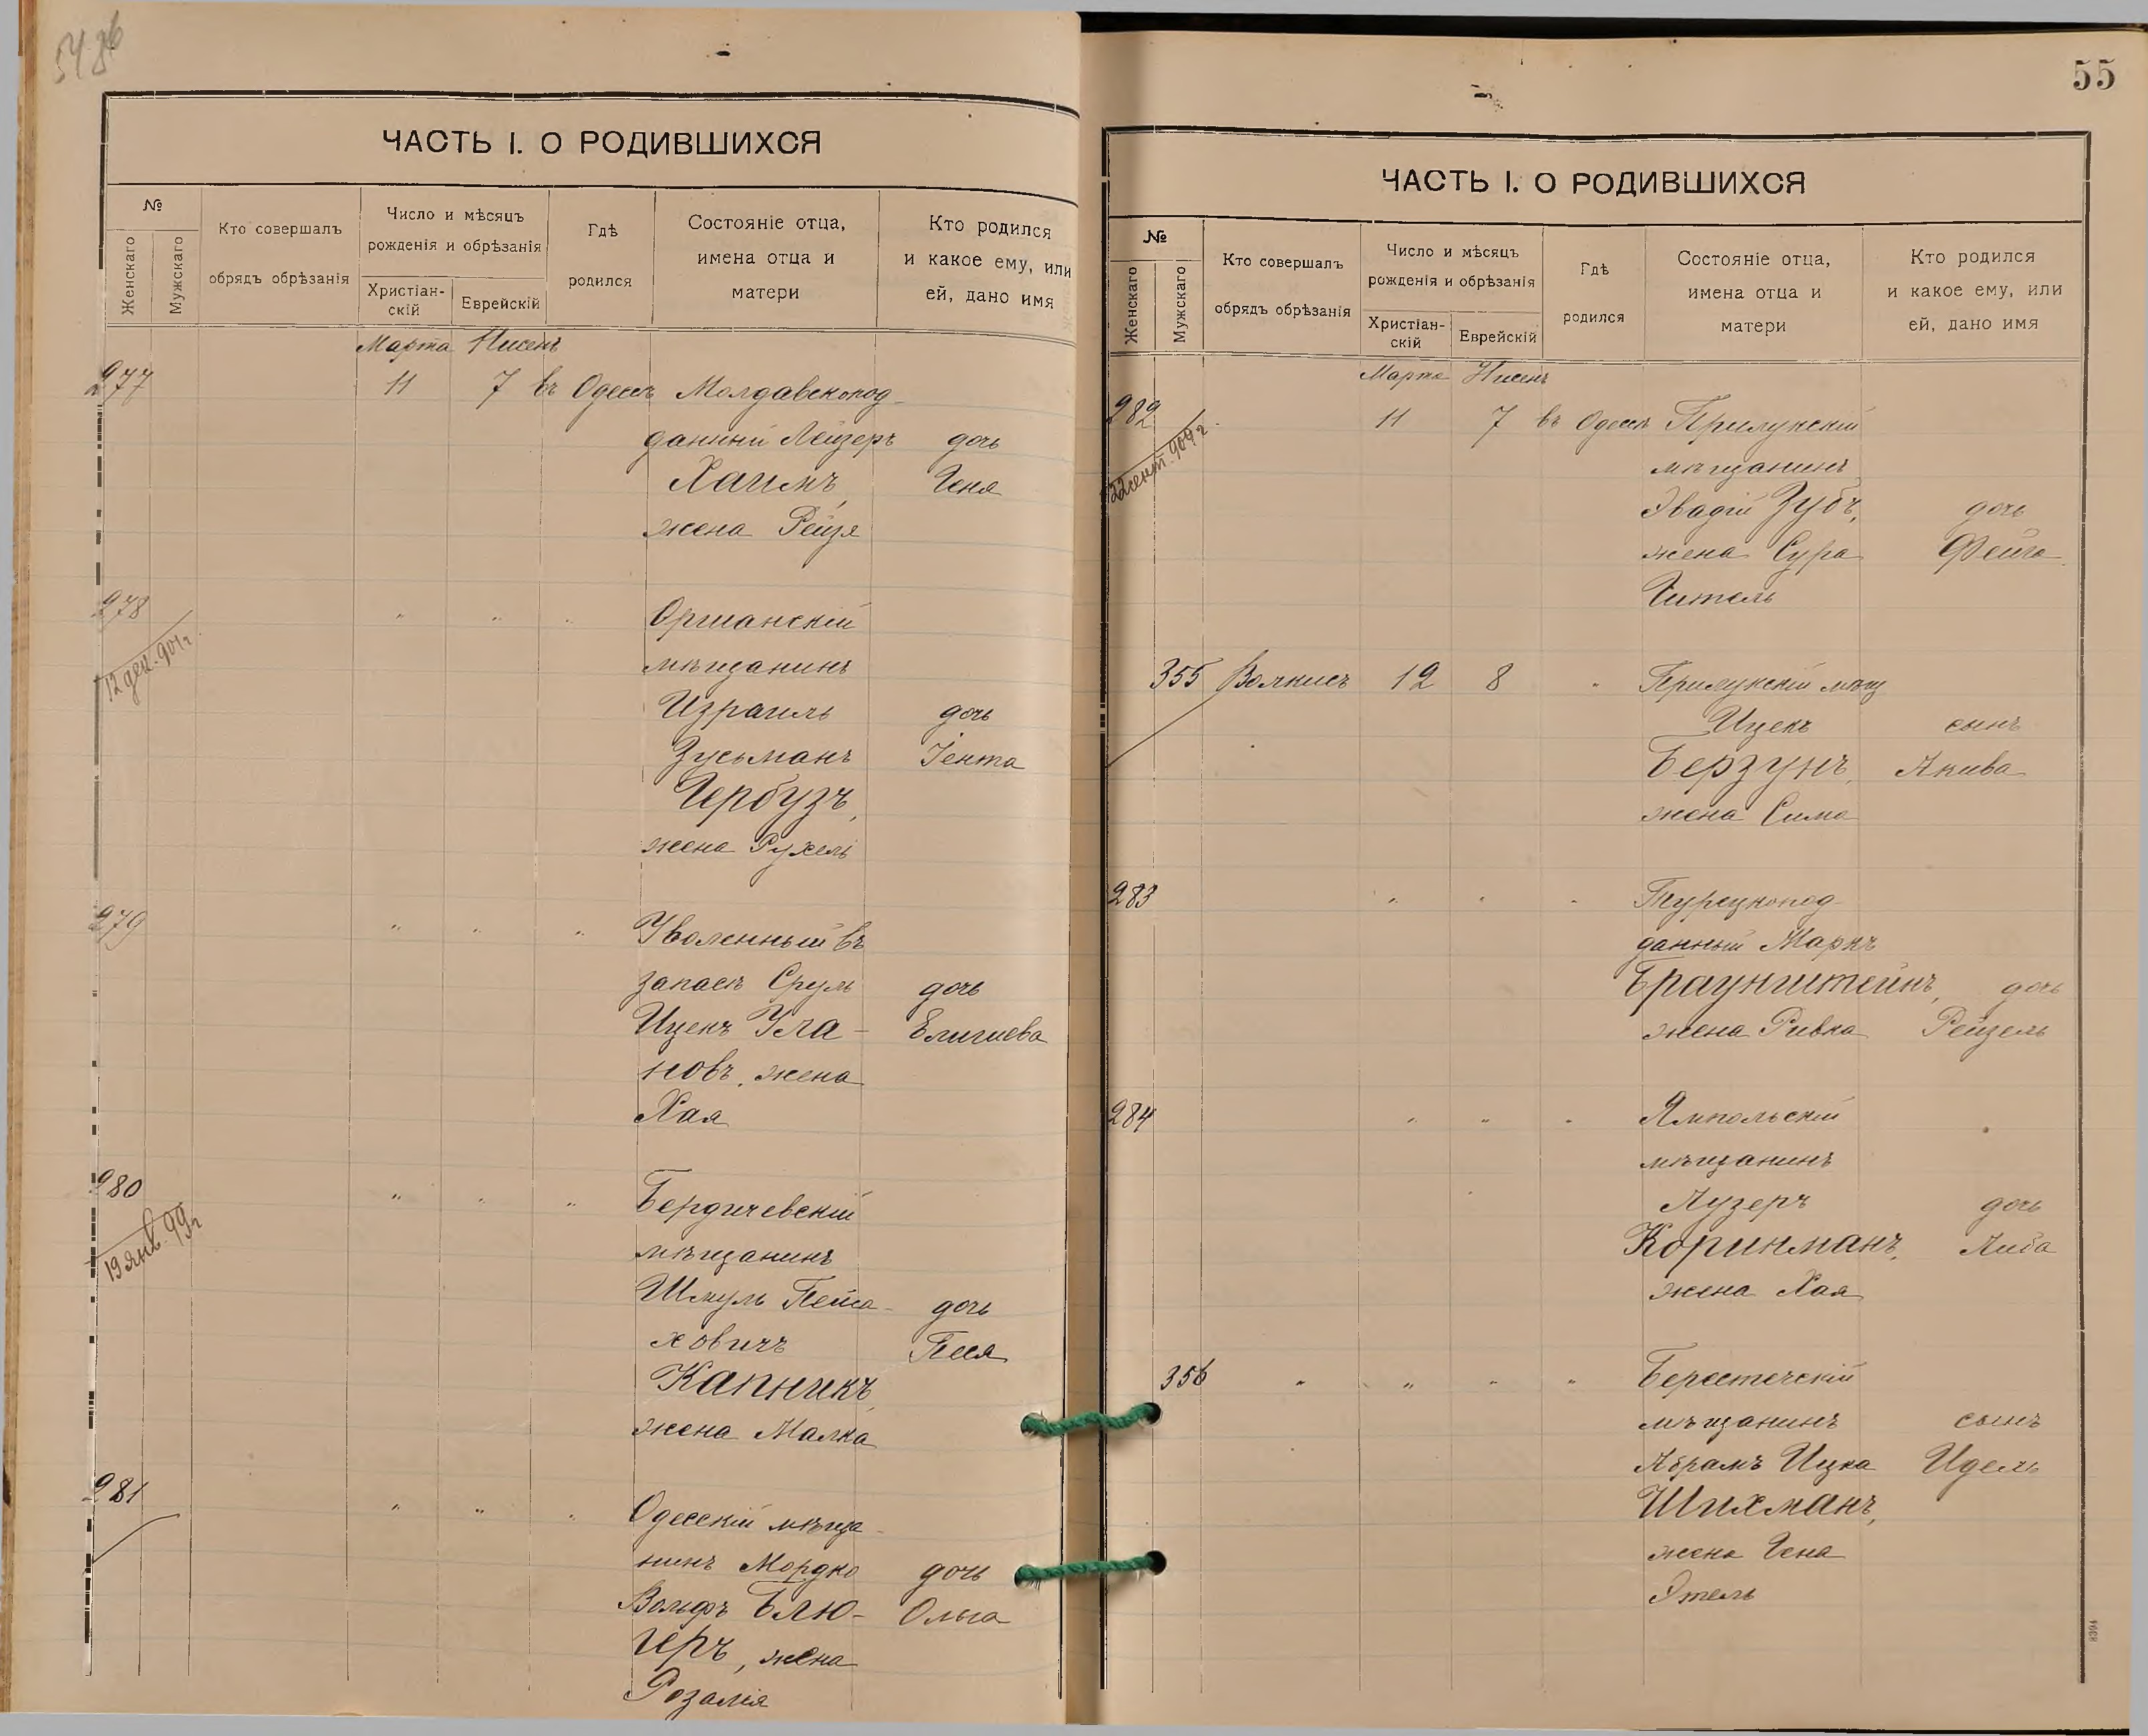 ЧАСТЬ I. О РОДИВШИХСЯ
№
Женскаго
Мужскаго
Кто совершалъ
обрядъ обрѣзанія
Число и мѣсяцъ
рожденія и обрѣзанія
Христіан-
скій
Еврейскій
Гдѣ
родился
Состояніе отца,
имена отца и
матери
Кто родился
и какое ему, или
ей, дано имя
Марта Нисенъ
277 11 7 въ Одессѣ Молдавскопод-
данный Лейзеръ дочь
Хаимъ, Геня
жена Рейзя
278 " " " Оршанскій
12 дек. 904 г.
мѣщанинъ
Израиль дочь
Зусьманъ Іента
Гербузъ,
жена Рухель
279 " " " Уволенный въ
запасъ Сруль дочь
Ицекъ Ула-
новъ, жена
Хая
280 " " " Бердичевскій
19 янв. 99 г
мѣщанинъ
Шмуль Пейса- дочь
ховичъ Песя
Капникъ,
жена Малка
281 " " " Одесскій мѣща-
нинъ Мордко дочь
Вольфъ Блю- Ольга
геръ, жена
Розалія
55
ЧАСТЬ I. О РОДИВШИХСЯ
№
Женскаго
Мужскаго
Кто совершалъ
обрядъ обрѣзанія
Число и мѣсяцъ
рожденія и обрѣзанія
Христіан-
скій
Еврейскій
Гдѣ
родился
Состояніе отца,
имена отца и
матери
Кто родился
и какое ему, или
ей, дано имя
Марта Нисенъ
282 11 7 въ Одессѣ Прилукскій
22 сент. 909 г.
мѣщанинъ
Эвадій Зубъ, дочь
жена Сура Фейга
Гитель
355 12 8 " Прилукскій мѣщ
Ицекъ сынъ
Берзунъ, Акива
жена Сима
283 " " " Турецкопод-
данный Маркъ
Браунштейнъ, дочь
жена Ривка Рейзель
284 " " " Ямпольскій
мѣщанинъ
Лузеръ дочь
Коринманъ, Либа
жена Хая
356 " " " " Берестечскій
мѣщанинъ сынъ
Абрамъ Ицка Идель
Шихманъ,
жена Гена
Этель